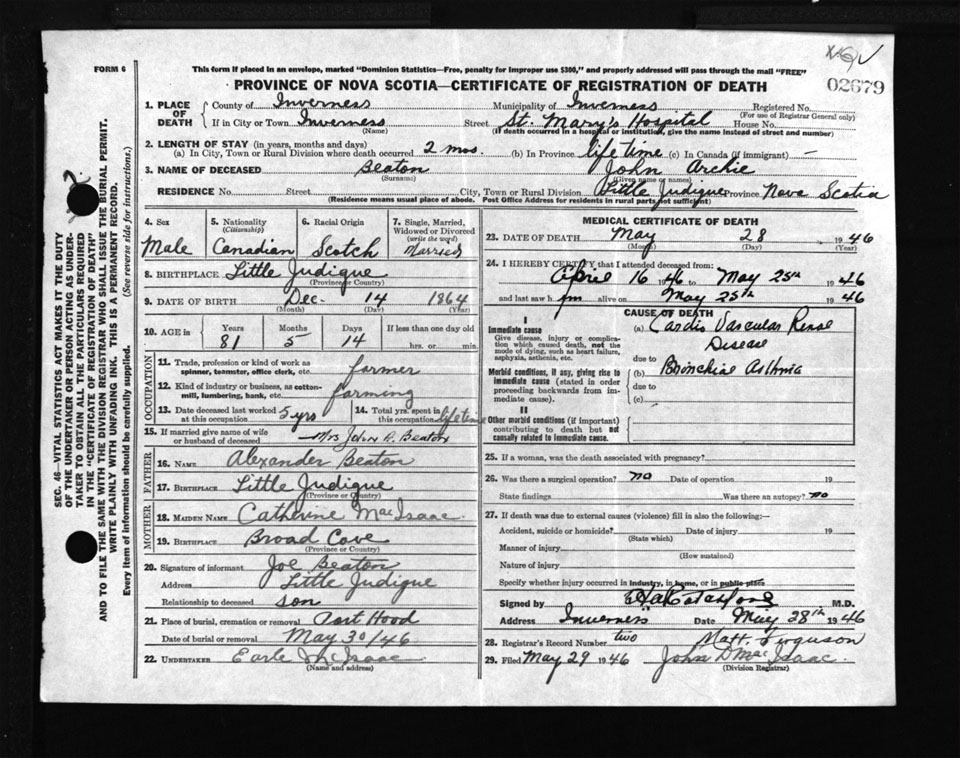 FORM 6
This form if placed in an envelope, marked "Dominion Statistics—Free, penalty for improper use $300," and properly addressed will pass through the mail "FREE"
02679
PROVINCE OF NOVA SCOTIA—CERTIFICATE OF REGISTRATION OF DEATH
SEC. 46—VITAL STATISTICS ACT MAKES IT THE DUTY
OF THE UNDERTAKER OR PERSON ACTING AS UNDER-
TAKER TO OBTAIN ALL THE PARTICULARS REQUIRED
IN THE "CERTIFICATE OF REGISTRATION OF DEATH"
AND TO FILE THE SAME WITH THE DIVISION REGISTRAR WHO SHALL ISSUE THE BURIAL PERMIT.
WRITE PLAINLY WITH UNFADING INK. THIS IS A PERMANENT RECORD.
Every item of information should be carefully supplied. (See reverse side for instructions.)
1. PLACE OF DEATH County of Inverness Municipality of Inverness Registered No.
(For use of Registrar General only)
If in City or Town Inverness Street St. Mary's Hospital House No.
(Name) (If death occurred in a hospital or institution, give the name instead of street and number)
2. LENGTH OF STAY (in years, months and days)
(a) In City, Town or Rural Division where death occurred 2 mos. (b) In Province life time (c) In Canada (if immigrant) —
3. NAME OF DECEASED Beaton John Archie
(Surname) (Given name or names)
RESIDENCE No. Street City, Town or Rural Division Little Judique Province Nova Scotia
(Residence means usual place of abode. Post Office Address for residents in rural parts not sufficient)
4. Sex
Male
5. Nationality
(Citizenship)
Canadian
6. Racial Origin
Scotch
7. Single, Married,
Widowed or Divorced
(write the word)
Married
8. BIRTHPLACE Little Judique
(Province or Country)
9. DATE OF BIRTH Dec. 14 1864
(Month) (Day) (Year)
10. AGE in Years Months Days If less than one day old
81 5 14 hrs. or min.
OCCUPATION
11. Trade, profession or kind of work as
spinner, teamster, office clerk, etc. farmer
12. Kind of industry or business, as cotton-
mill, lumbering, bank, etc. farming
13. Date deceased last worked
at this occupation 5 yrs
14. Total yrs. spent in
this occupation life time
15. If married give name of wife
or husband of deceased Mrs John A. Beaton
FATHER
16. NAME Alexander Beaton
17. BIRTHPLACE Little Judique
(Province or Country)
MOTHER
18. MAIDEN NAME Catherine MacIsaac
19. BIRTHPLACE Broad Cove
(Province or Country)
20. Signature of informant Joe Beaton
Address Little Judique
Relationship to deceased son
21. Place of burial, cremation or removal Port Hood
Date of burial or removal May 30/46
22. UNDERTAKER Earle McIsaac
(Name and address)
MEDICAL CERTIFICATE OF DEATH
23. DATE OF DEATH May 28 1946
(Month) (Day) (Year)
24. I HEREBY CERTIFY that I attended deceased from:
April 16 1946 to May 25th 1946
and last saw him alive on May 25th 1946
CAUSE OF DEATH
I
Immediate cause
Give disease, injury or complica-
tion which caused death, not the
mode of dying, such as heart failure,
asphyxia, asthenia, etc.
(a) Cardio Vascular Renal
Disease
due to
Morbid conditions, if any, giving rise to
immediate cause (stated in order
proceeding backwards from im-
mediate cause).
(b) Bronchial Asthma
due to
(c)
II
Other morbid conditions (if important)
contributing to death but not
causally related to immediate cause.
25. If a woman, was the death associated with pregnancy?
26. Was there a surgical operation? no Date of operation 19
State findings Was there an autopsy? no
27. If death was due to external causes (violence) fill in also the following:—
Accident, suicide or homicide? Date of injury 19
(State which)
Manner of injury
(How sustained)
Nature of injury
Specify whether injury occurred in industry, in home, or in public place
Signed by M.D.
Address Inverness Date May 28th 1946
28. Registrar's Record Number two Matt Ferguson
29. Filed May 29 1946 John D MacIsaac.
(Division Registrar)